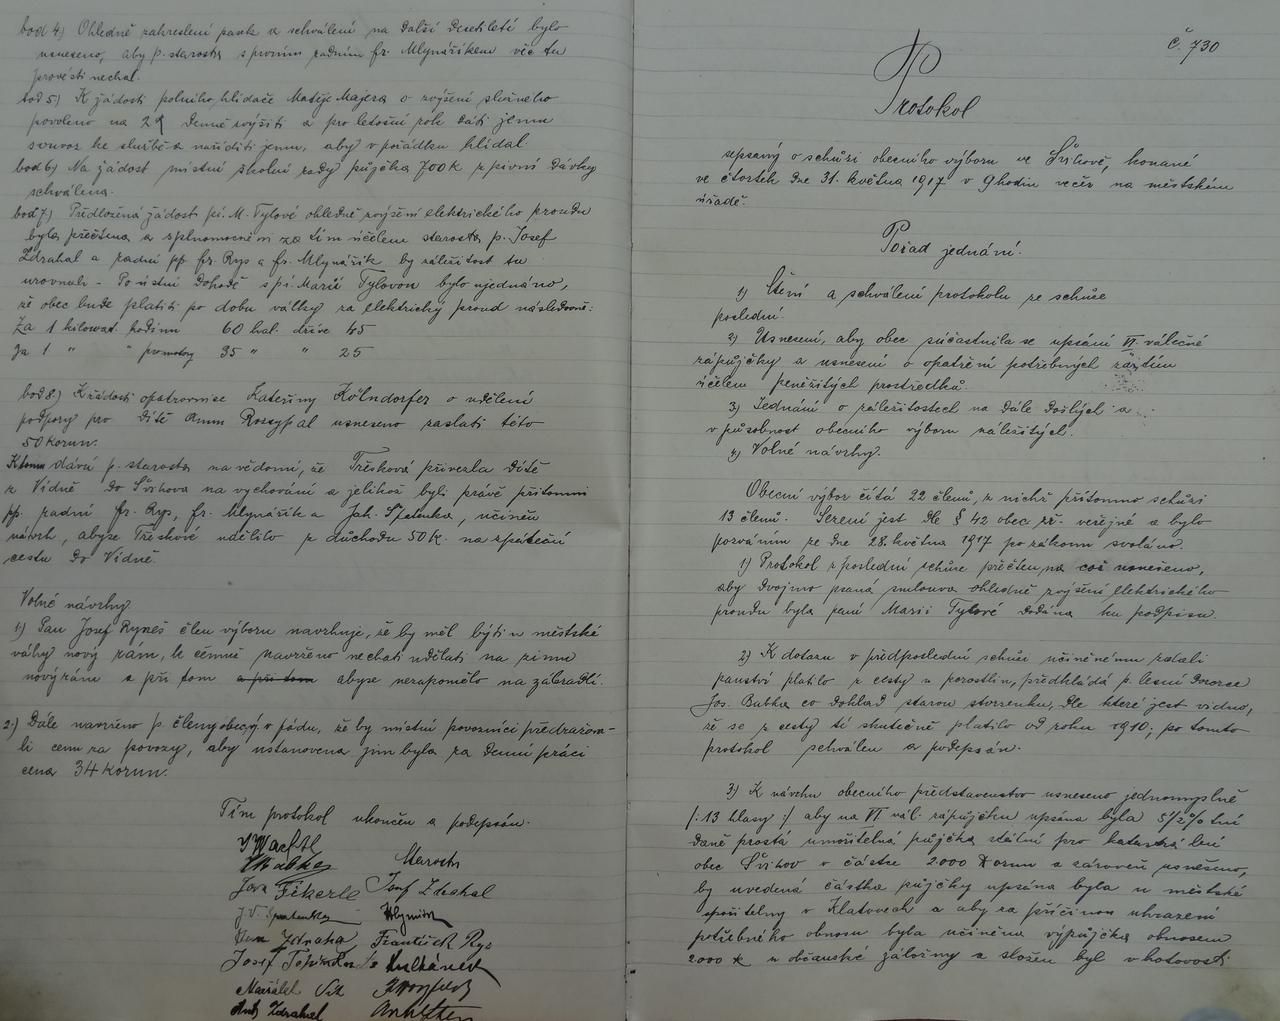 bod 4) Ohledně zakreslení park a schválení na další desetiletí bylo
usneseno, aby p. starosta s prvním radním fr. Mlynáříkem věc tu
provésti nechal.
bod 5) K žádosti polního hlídače Matěje Majera o zvýšení služného
povoleno na 2 K denně zvýšiti a pro letošní rok dáti jemu
ke službě a naříditi jemu, aby v pořádku hlídal.
bod 6) Na žádost místní školní rady půjčka 700 K z pivní dávky
schválena.
bod 7) Předložená žádost pí. M. Tylové ohledně zvýšení elektrického proudu
byla přečtena a splnomocněni za tím účelem starosta p. Josef
Zdrahal a radní pp. fr. Rys a fr. Mlynářík by záležitost tu
urovnali - Po ústní dohodě s pí. Marií Tylovou bylo ujednáno,
že obec bude platiti po dobu války za elektrický proud následovně:
Za 1 kilowat hodinu 60 hal. dříve 45
Za 1 " " pro motory 35 " " 25
bod 8) K žádosti opatrovnice Kateřiny Kölndorfer o udělení
podpory pro dítě Annu Rossypal usneseno zaslati této
50 korun.
K tomu dává p. starosta na vědomí, že Třesková přivezla dítě
z Vídně do Švihova na vychování a jelikož byli právě přítomni
pp. radní fr. Rys, fr. Mlynářík a Jak. Španka, učiněn
návrh, aby se Třeskové udělilo z důchodu 50 K. na zpáteční
cestu do Vídně.
Volné návrhy.
1) Pan Josef Ryneš člen výboru navrhuje, že by měl býti u městské
váhy nový rám, k čemuž navrženo nechati udělati na zimu
nový rám a při tom a při tom aby se nezapomělo na zábradlí.
2.) Dále navrženo p. členy obecýv v pádu, že by místní povozníci předražova-
li cenu za povozy, aby ustanovena jim byla za denní práci
cena 34 korun.
Tím protokol ukončen a podepsán.
Starosta
Jos. Fikerle Josef Zdrahal
František Rys
Josef
Ant. Zdrahal
č. 730
Protokol
sepsaný o schůzi obecního výboru ve Švihově, konané
ve čtvrtek dne 31. května 1917 v 9 hodin večer na městském
úřadě.
Pořad jednání.
1) Čtení a schválení protokolu ze schůze
poslední.
2) Usnesení, aby obec súčastnila se upsání VI. válečné
zápůjčky a usnesení o opatření potřebných za tím
účelem peněžitých prostředků.
3) Jednání o záležitostech na dále došlých a
v působnost obecního výboru náležitých.
4) Volné návrhy.
Obecní výbor čítá 22 členů, z nichž přítomno schůzi
13 členů. Sezení jest dle § 42 obec. zř. veřejné a bylo
pozváním ze dne 28. května 1917 po zákonu svoláno.
1) Protokol z poslední schůze přečten, na což usnešeno,
aby dvojmo psaná smlouva ohledně zvýšení elektrického
proudu byla paní Marii Tylové dodána ku podpisu.
2) K dotazu v předposlední schůzi učiněnému zdali
panství platilo z cesty u porostlin, předkládá p. lesní dvorce
Jos. Babka co doklad starou stvrzenku, dle které jest vidno,
že se z cesty té skutečně platilo od roku 1910; po tomto
protokol schválen a podepsán.
3) K návrhu obecního představenstva usneseno jednomyslně
/: 13 hlasy :/ aby na VI vál. zápůjčku upsána byla 5½% tní
daně prostá umořitelná půjčka státní pro katastrální
obec Švihov v částce 2000 Korun a zároveň usnešeno,
by uvedená částka půjčky upsána byla u městské
spořitelny v Klatovech a aby za příčinou uhrazení
potřebného obnosu byla učiněna výpůjčka obnosem
2000 K u občanské záložny a složen byl v hotovosti